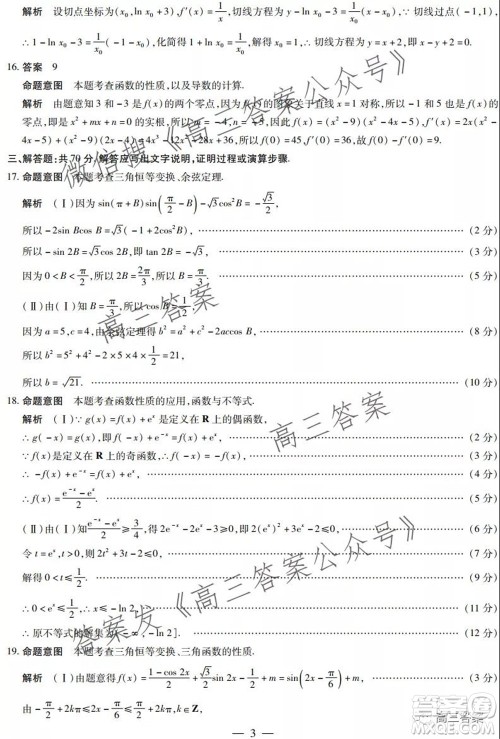 解析 设切点坐标为(x₀,ln x₀+3),f′(x)=1/x,切线方程为 y-ln x₀-3=1/x₀(x-x₀).∵切线过点(-1,1),
∴1-ln x₀-3=1/x₀(-1-x₀),化简得1+ln x₀=1/x₀,解得x₀=1,∴切线方程为y-3=x-1,即x-y+2=0.
16. 答案 9
命题意图 本题考查函数的性质,以及导数的计算.
解析 由题意知3和-3是f(x)的两个零点,因为f(x)的图象关于直线x=1对称,所以-1和5也是f(x)的
零点,即x²+mx+n=0的实根,所以m=-4,n=-5,因此f(x)=(x²-9)(x²-4x-5),f′(x)=2x(x²-
4x-5)+(x²-9)(2x-4)=4x³-12x²-28x+36,所以f(0)=45,f′(0)=36,故f(0)-f′(0)=9.
三、解答题:共70分.解答应写出文字说明,证明过程或演算步骤.
17. 命题意图 本题考查三角恒等变换、余弦定理.
解析 (Ⅰ)因为sin(π+B)sin(π/2-B)-√3cos²B=-√3/2,
所以-2sin Bcos B=√3(1-2cos²B)
所以-sin 2B=√3cos 2B,即tan 2B=-√3. (2分)
因为0<B<π/2,所以2B=2π/3,所以B=π/3. (5分)
(Ⅱ)由(Ⅰ)知B=π/3,所以cos B=1/2. (6分)
因为a=5,c=4,由余弦定理得b²=a²+c²-2accos B, (8分)
所以b²=5²+4²-2×5×4×1/2=21,
所以b=√21. (10分)
18. 命题意图 本题考查函数性质的应用,函数与不等式.
解析 (Ⅰ)∵g(x)=f(x)+eˣ是定义在R上的偶函数,
∴g(-x)=g(x),即f(-x)+e⁻ˣ=f(x)+eˣ.
∵f(x)是定义在R上的奇函数,∴f(-x)=-f(x).
∴-f(x)+e⁻ˣ=f(x)+eˣ,
∴f(x)=(e⁻ˣ-eˣ)/2.
(Ⅱ)由(Ⅰ)知(e⁻ˣ-eˣ)/2≥3/4,得2e⁻ˣ-2eˣ-3≥0,即2(eˣ)²+3eˣ-2≤0. (8分)
令t=eˣ,t>0,则2t²+3t-2≤0, (9分)
解得0<t≤1/2. (10分)
∴0<eˣ≤1/2,∴x≤-ln 2. (11分)
∴原不等式的解集为(-∞,-ln 2]. (12分)
19. 命题意图 本题考查三角恒等变换、三角函数的性质.
解析 (Ⅰ)由题意得f(x)=(1-cos 2x)/2+√3/2 sin 2x-1/2=sin(2x-π/6), (3分)
由-π/2+2kπ≤2x-π/6≤π/2+2kπ,k∈Z,
— 3 —
微信搜《高三答案公众号》
高三答案
高三答案
答案发《高三答案公众号》
高三答案